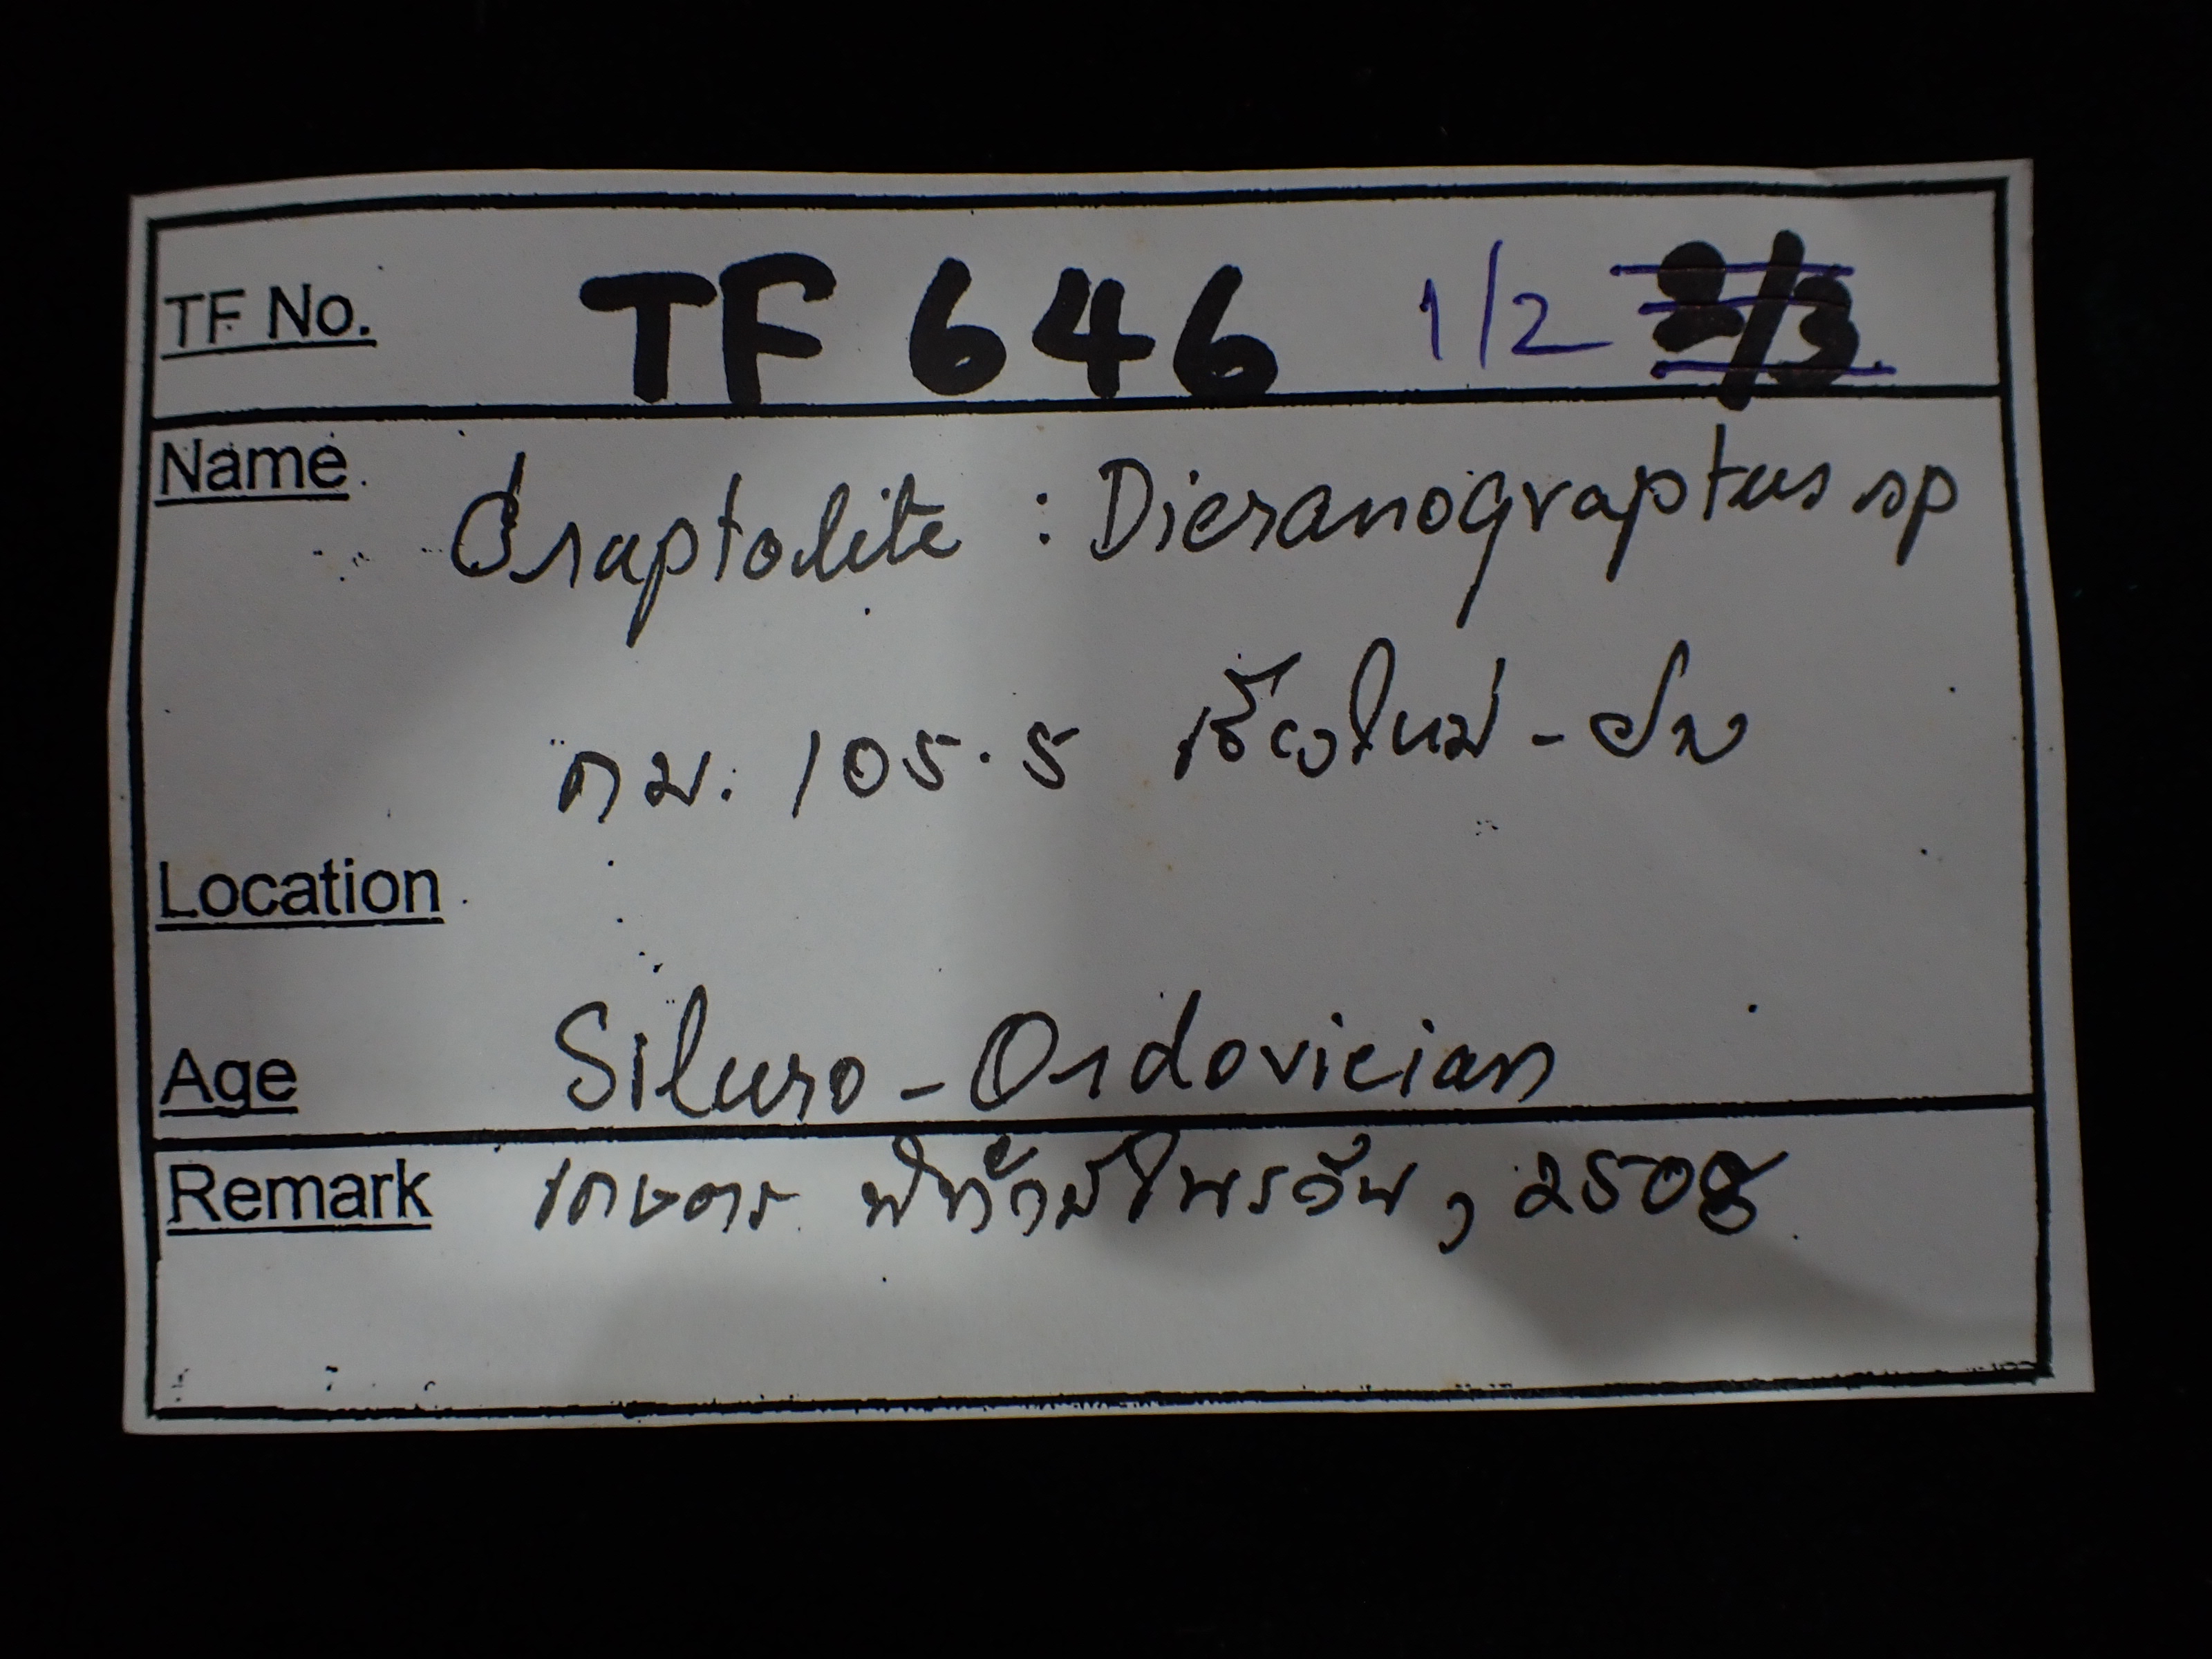 TF No. TF 646 1/2 2/3
Name Graptolite : Dicranograptus sp
กม. 105.5 เชียงใหม่ - ฝาง
Location
Age Siluro - Ordovician
Remark เกษตร พิทักษ์ไพรวัน, 2508